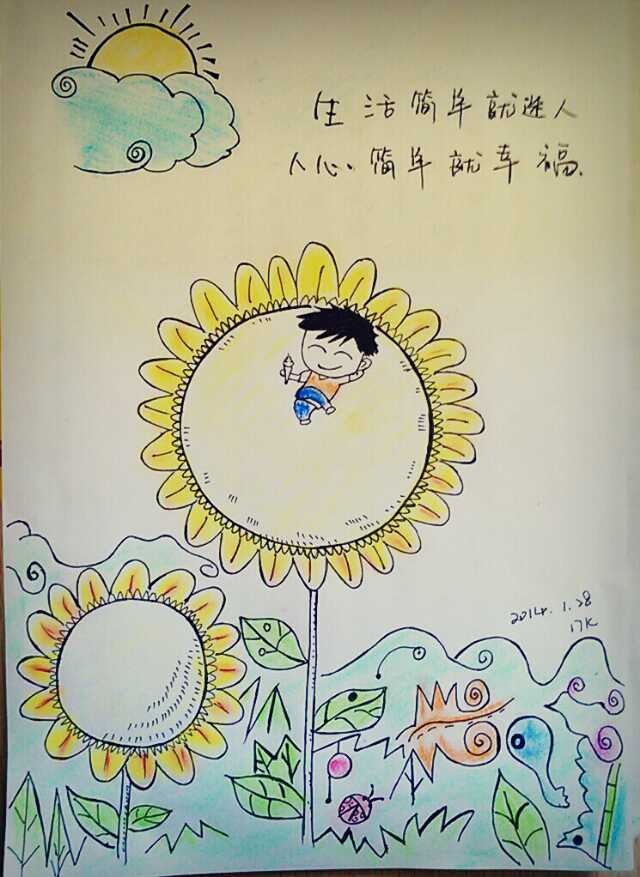 生活简单就迷人
人心简单就幸福
2014.1.28
17K